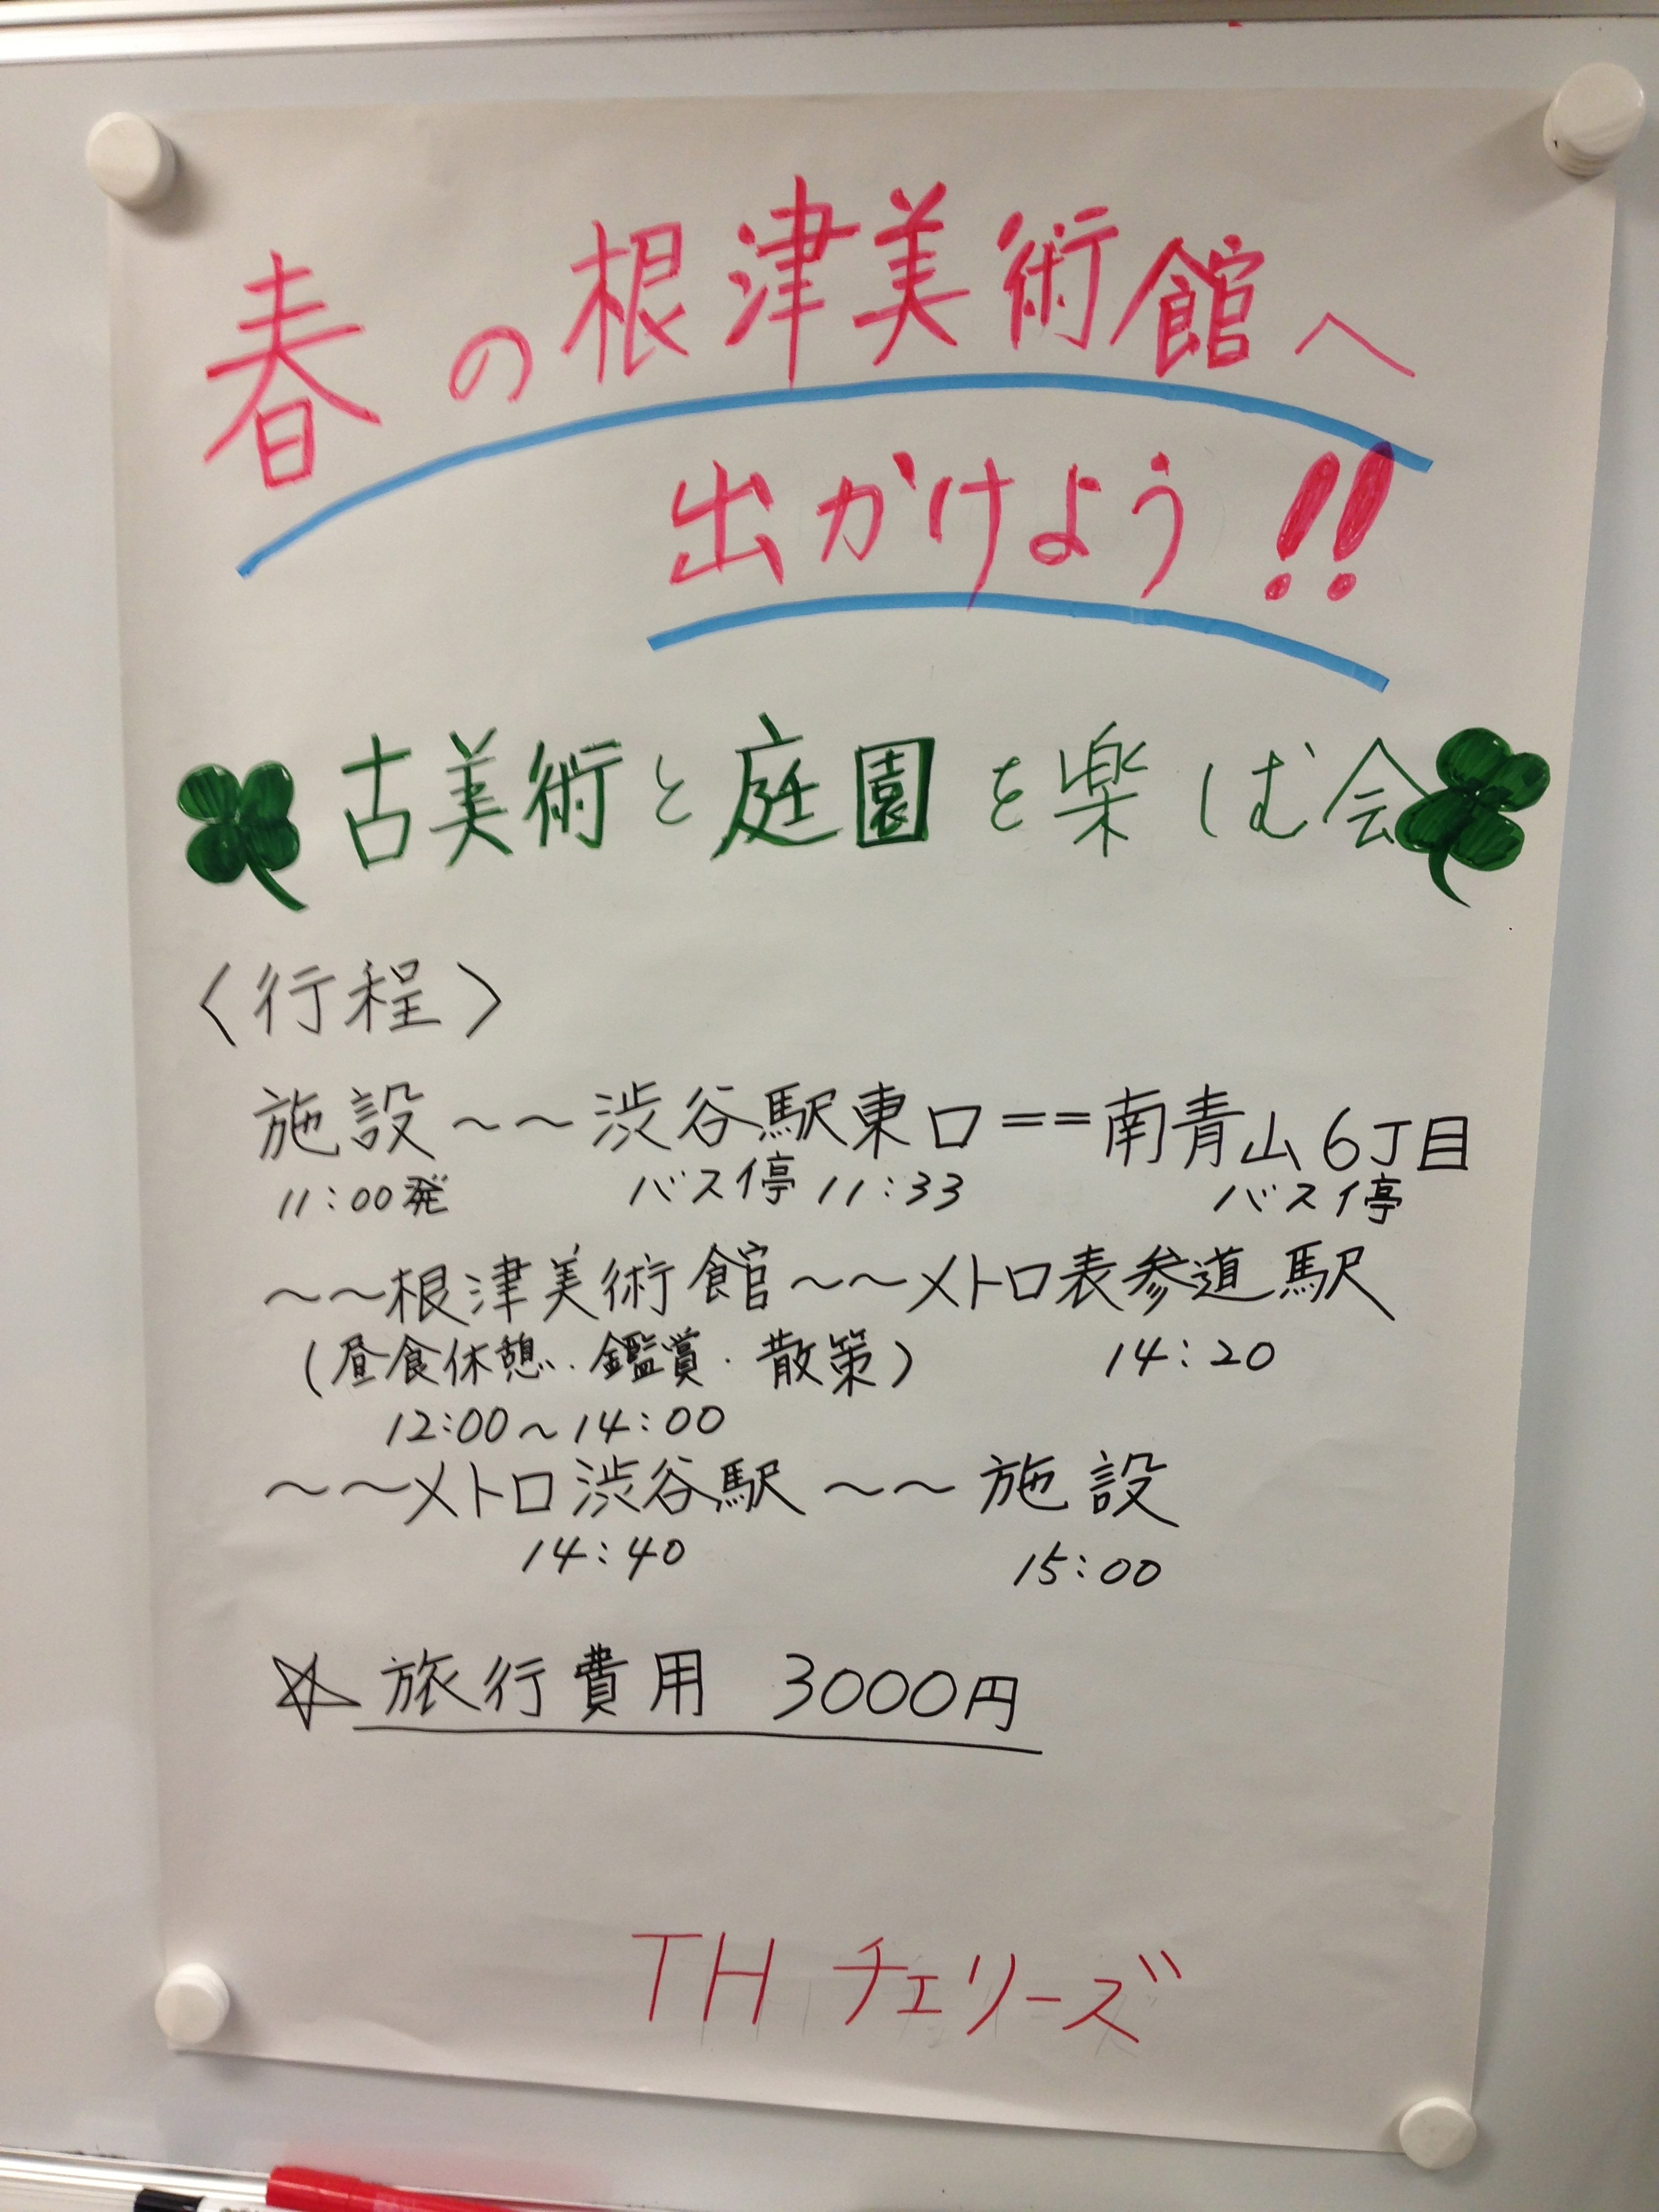 春の根津美術館へ
出かけよう!!
古美術と庭園を楽しむ会
〈行程〉
施設～～渋谷駅東口==南青山6丁目
11:00発 バス停 11:33 バス停
～～根津美術館～～メトロ表参道駅
(昼食休憩・鑑賞・散策) 14:20
12:00～14:00
～～メトロ渋谷駅～～施設
14:40 15:00
☆旅行費用 3000円
TH チェリーズ